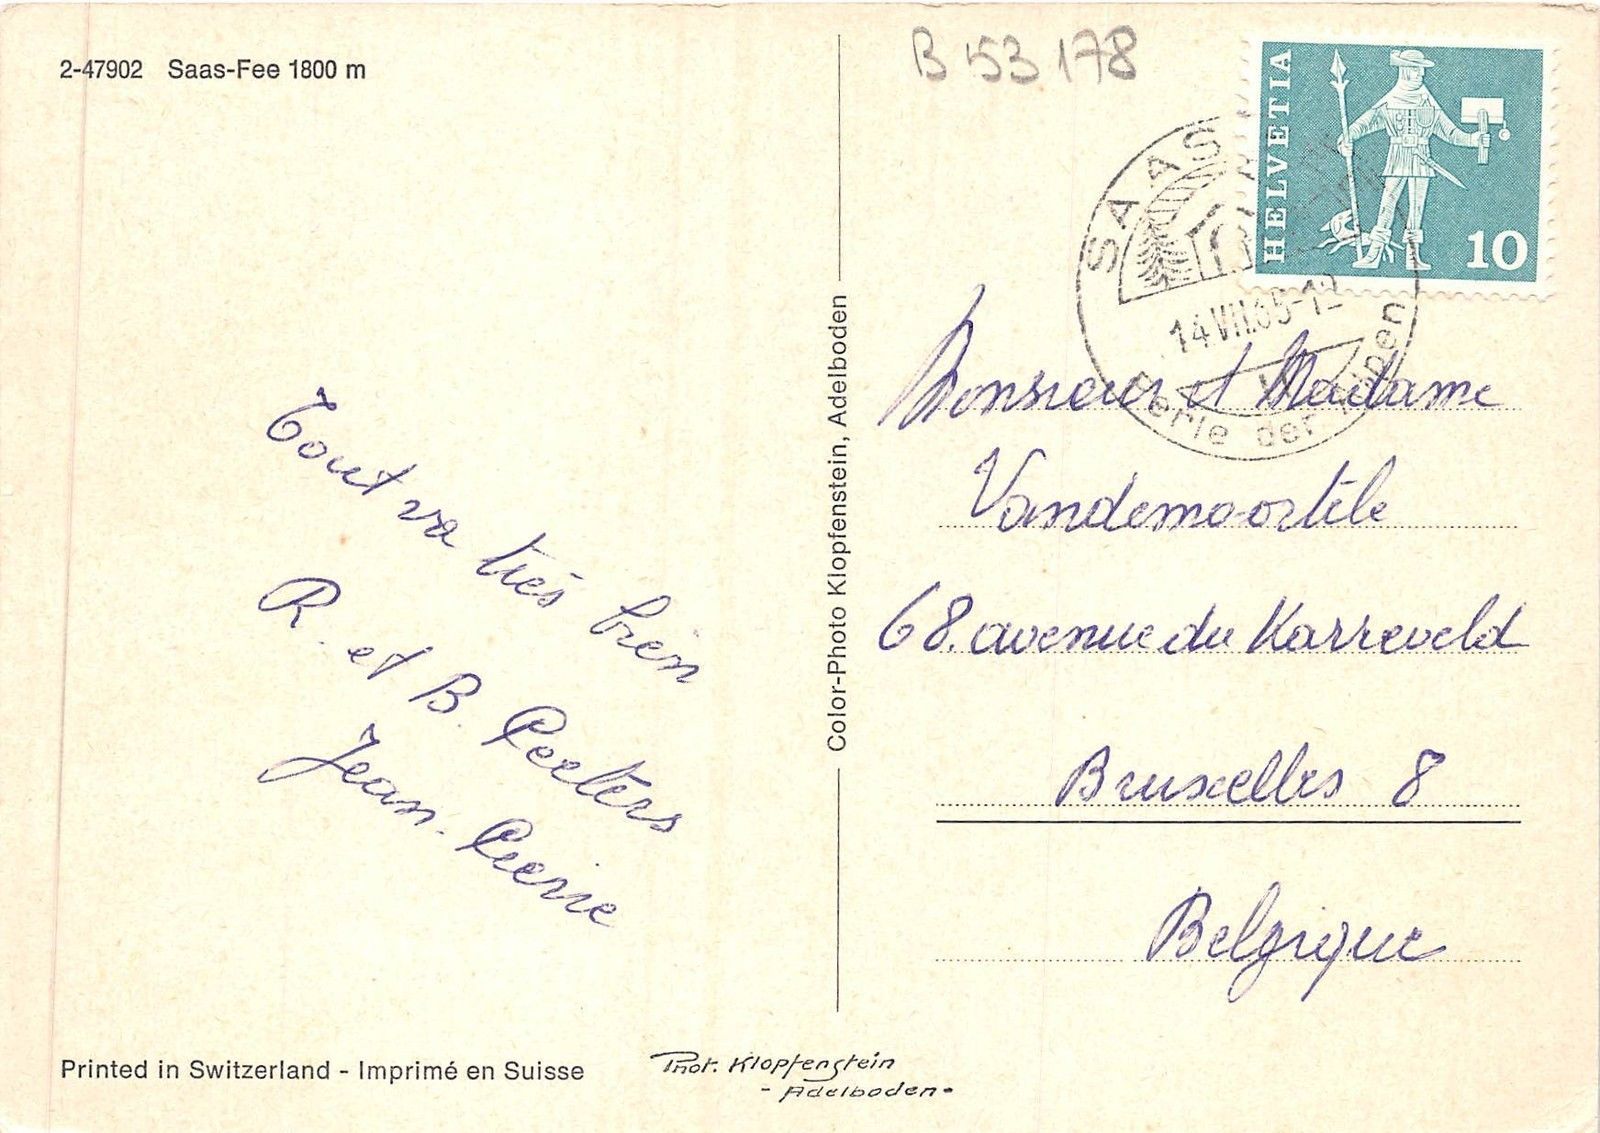 2-47902 Saas-Fee 1800 m
B 53 178
HELVETIA
10
SAAS
14.VII.65-12
Perle der Alpen
Tout va très bien
R. et B. Peeters
Jean-Pierre
Color-Photo Klopfenstein, Adelboden
Monsieur et Madame
Vandemoortele
68. avenue du Karreveld
Bruxelles 8
Belgique
Printed in Switzerland - Imprimé en Suisse
Phot. Klopfenstein
- Adelboden -